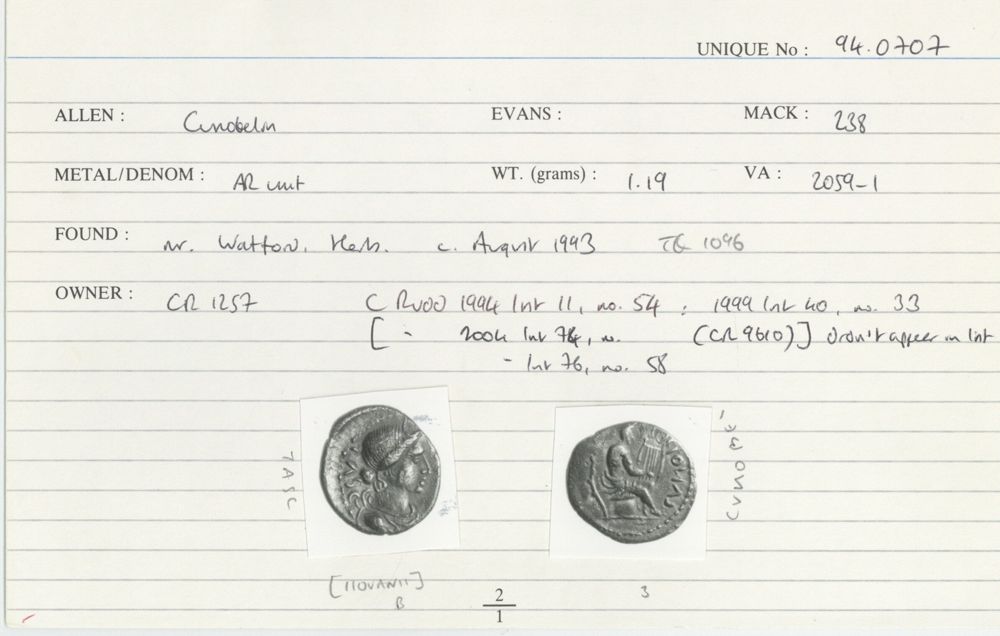 UNIQUE No : 94.0707
ALLEN : Cunobelin EVANS : MACK : 238
METAL/DENOM : AR unit WT. (grams) : 1.19 VA : 2059-1
FOUND : nr. Watford, Herts. c. August 1993 TL 1096
OWNER : CR 1257 C RUDD 1994 list 11, no. 54 ; 1999 list 40, no. 33
[ - 2004 list 74, no. (CR 9610)] didn't appear in list
- list 76, no. 58
TASC
CVNOBE-
[IIOVANII]
B
3
2
1